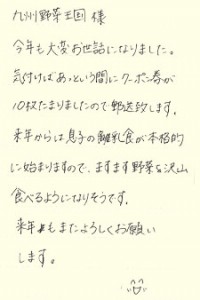 九州野菜王国 様
今年も大変お世話になりました。
気付けばあっという間にクーポン券が
10枚たまりましたので郵送致します。
来年からは息子の離乳食が本格的
に始まりますので、ますます野菜を沢山
食べるようになりそうです。
来年もまたよろしくお願い
します。